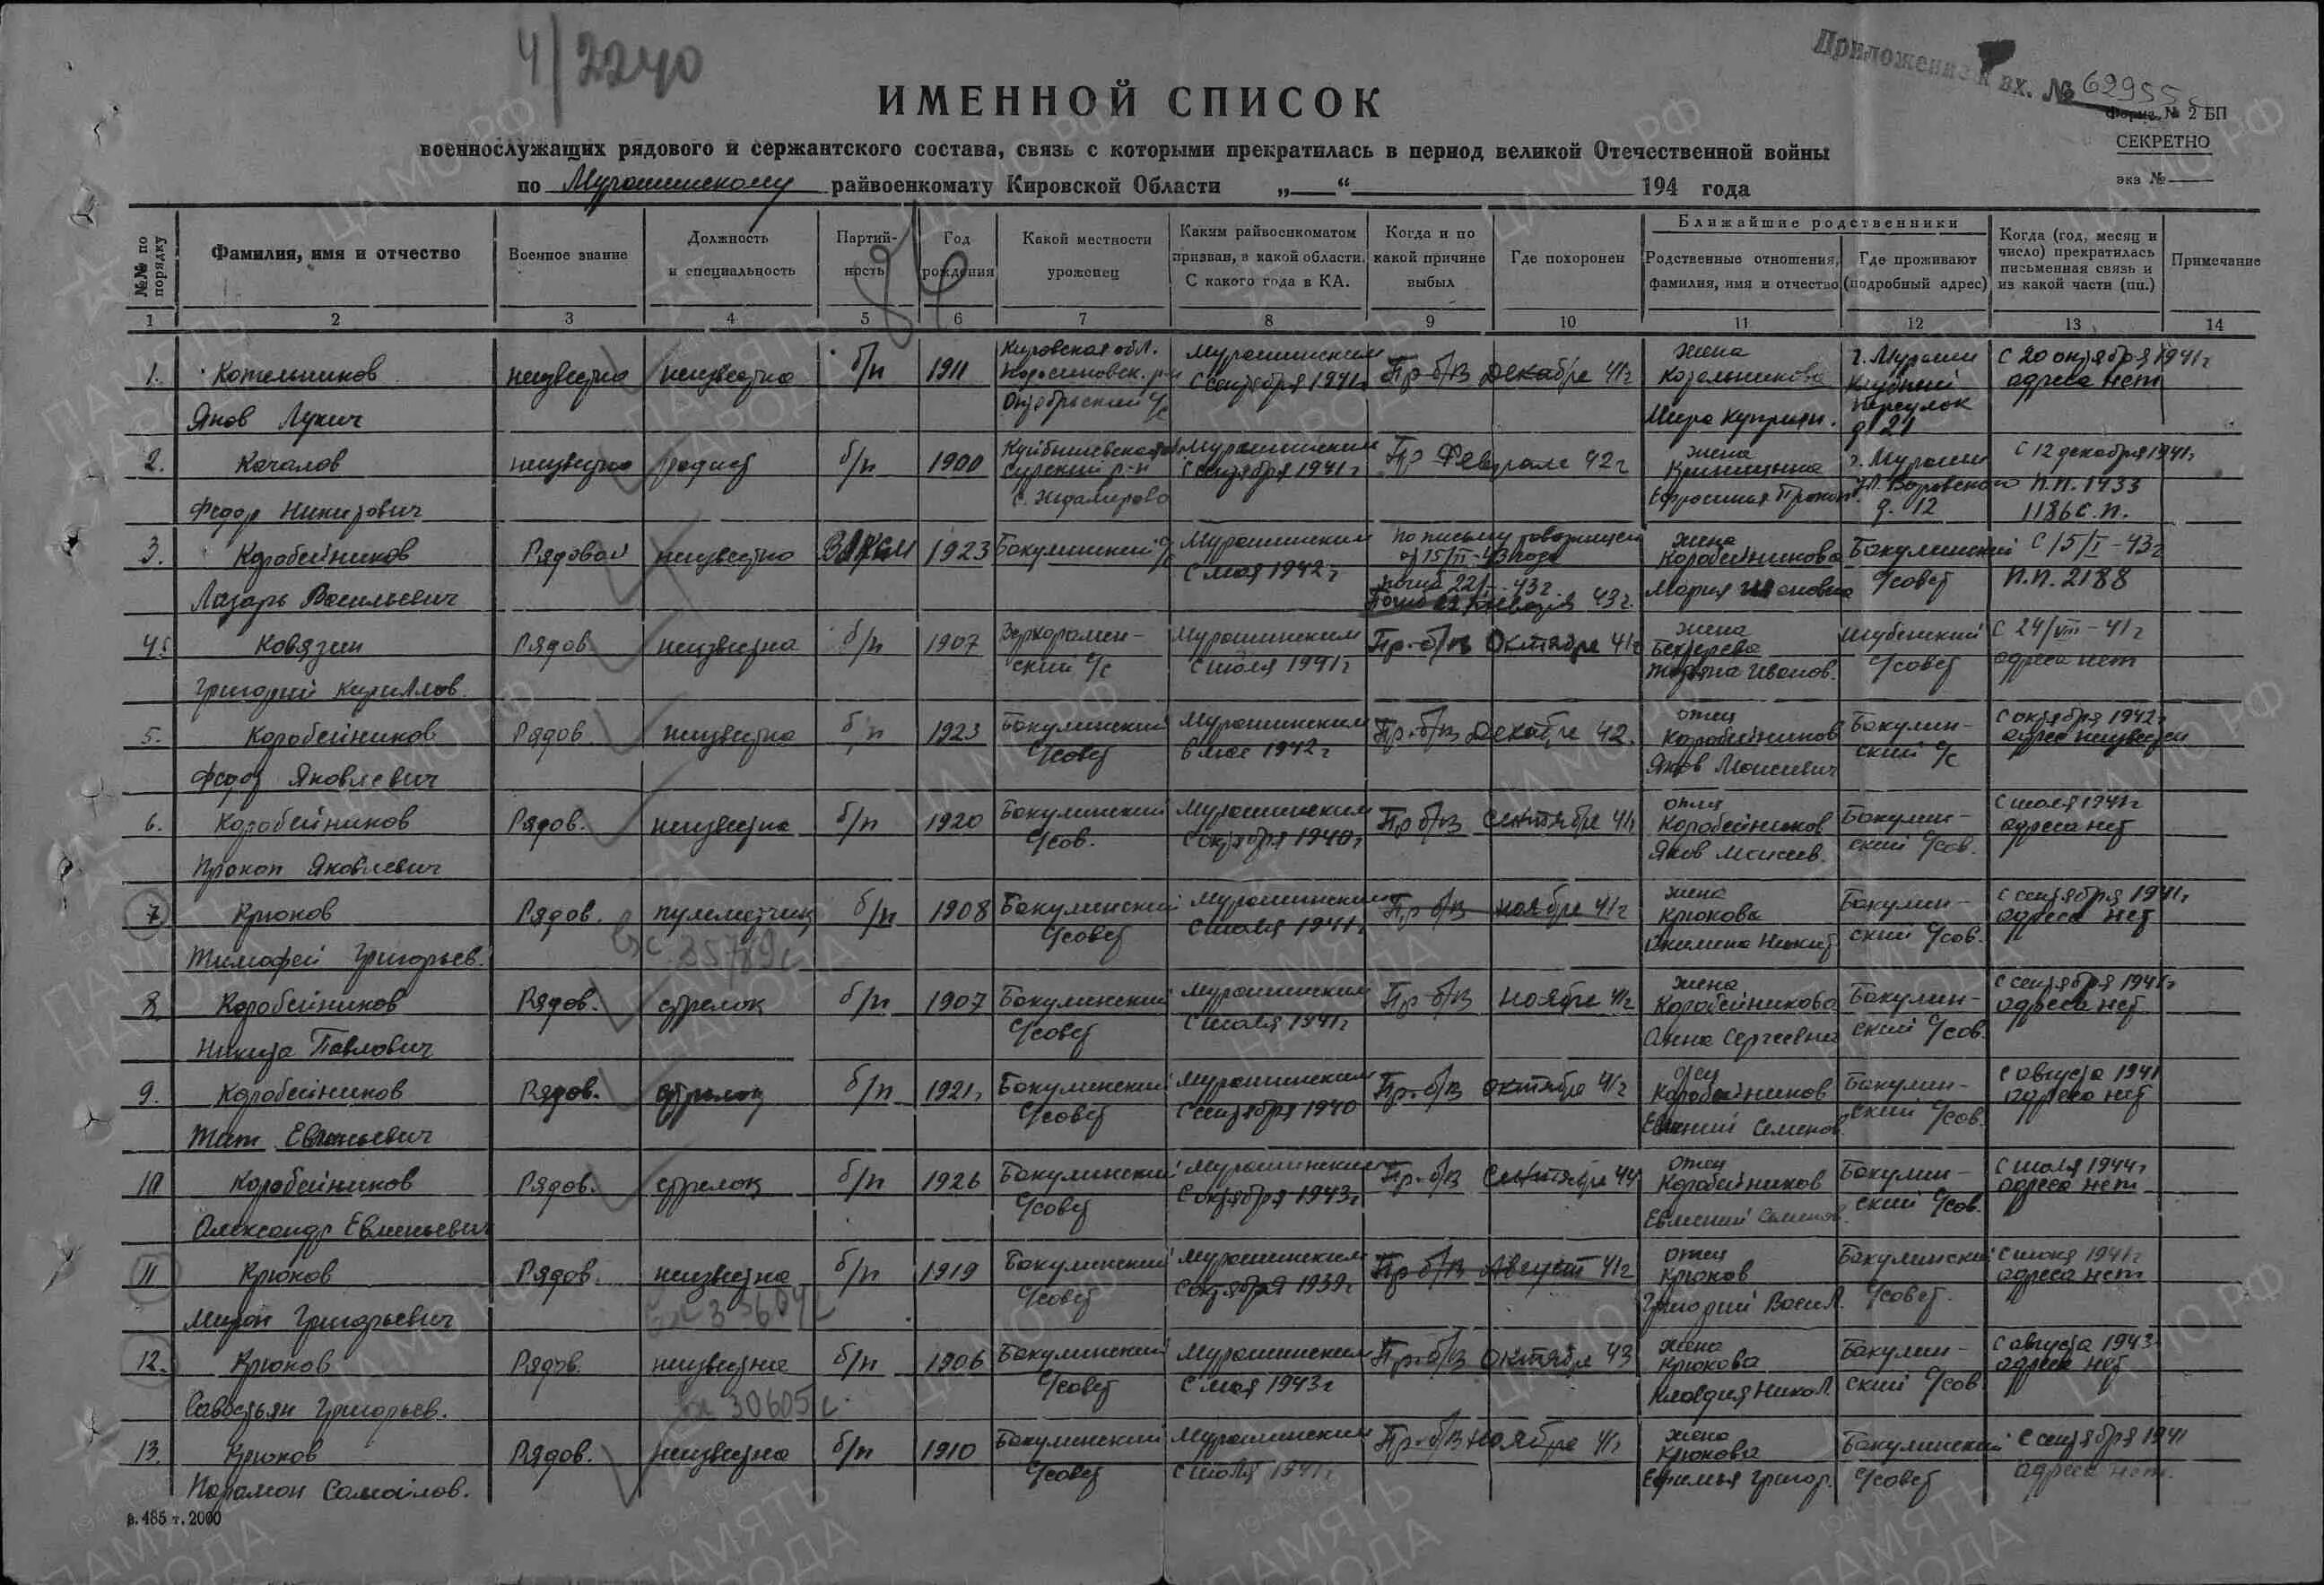 4/2240
Приложение к вх. № 62955с
Форма № 2 БП
СЕКРЕТНО
экз №
ИМЕННОЙ СПИСОК
военнослужащих рядового и сержантского состава, связь с которыми прекратилась в период великой Отечественной войны
по Мурашинскому райвоенкомату Кировской Области „ “ 194 года
№№ по порядку
Фамилия, имя и отчество
Военное звание
Должность и специальность
Партийность
Год рождения
Какой местности уроженец
Каким райвоенкоматом призван, в какой области. С какого года в КА.
Когда и по какой причине выбыл
Где похоронен
Ближайшие родственники
Родственные отношения, фамилия, имя и отчество
Где проживают (подробный адрес)
Когда (год, месяц и число) прекратилась письменная связь и из какой части (пп.)
Примечание
1 2 3 4 5 6 7 8 9 10 11 12 13 14
1. Котельников неизвестно неизвестно б/п 1911 Кировская обл. Мурашинским Пр б/в Декабре 41г жена г. Мураши С 20 октября 1941г
Октябрьский с/с С сентября 1941г Котельникова переулок адреса нет
Яков Лукич д 21
2. Качалов неизвестно радист б/п 1900 Куйбышевская Мурашинским Пр Феврале 42г жена г. Мураши С 12 декабря 1941г
Сурский р-н С сентября 1941г ул. Воровского П.П. 1433
Федор Никитович д. 12 1186 с.п.
3. Коробейников Рядовой неизвестно ВЛКСМ 1923 Бакулинский с/с Мурашинским По письму товарищей жена Бакулинский С 15/I-43г
С мая 1942г Коробейникова с/совет П.П. 2188
Лазарь Васильевич погиб 22/I-43г. Мария
4. Ковязин Рядов неизвестно б/п 1907 Верхораменский с/с Мурашинским Пр-б/в Октябре 41г жена Шубенский С 24/VIII-41г
Григорий Кириллов. С июля 1941г Бехтерева с/совет адреса нет
Иванов.
5. Коробейников Рядов неизвестно б/п 1923 Бакулинский Мурашинским Пр-б/в Декабре 42. отец Бакулин- С октября 1942г
с/совет в мае 1942г Коробейников ский с/с адрес неизвестен
Федот Яковлевич Яков Моисеевич
6. Коробейников Рядов. неизвестно б/п 1920 Бакулинский Мурашинским Пр б/в Сентябре 41г отец Бакулин- С июля 1941г
с/сов. С октября 1940г Коробейников ский с/сов. адреса нет
Прокоп Яковлевич Яков Моисеев.
7 Крюков Рядов. пулеметчик б/п 1908 Бакулинский Мурашинским Пр б/в ноябре 41г жена Бакулин- С сентября 1941г
с/совет С июля 1941г Крюкова ский с/сов. адреса нет
Тимофей Григорьев. вх. 35789с Никит
8. Коробейников Рядов. стрелок б/п 1907 Бакулинский Мурашинским Пр-б/в Ноябре 41г жена Бакулин- С сентября 1941г
с/совет С июля 1941г Коробейникова ский с/сов. адреса нет
Никита Павлович Анна Сергеевна
9. Коробейников Рядов. стрелок б/п 1921г Бакулинский Мурашинским Пр-б/в октябре 41г Коробейников Бакулин- С августа 1941
с/совет С сентября 1940 ский с/сов. адреса нет
Тит Евменьевич Евмений Семенов.
10 Коробейников Рядов. стрелок б/п 1926 Бакулинский Мурашинским Пр-б/в Сентябре 44 отец Бакулин- С июля 1944г
с/совет С октября 1943г Коробейников ский с/сов. адреса нет
Александр Евменьевич Евмений Семенов.
11 Крюков Рядов. неизвестно б/п 1919 Бакулинский Мурашинским Пр б/в Август 41г отец Бакулинский С июня 1941г
с/совет С октября 1939г Крюков с/совет. адреса нет
Мирон Григорьевич Григорий Васил.
12. Крюков Рядов. неизвестно б/п 1906 Бакулинский Мурашинским Пр-б/в Октябре 43 жена Бакулин- С августа 1943
с/совет С мая 1943г Крюкова ский с/сов адреса нет
Савостьян Григорьев. вх 30605с. Клавдия Никол.
13. Крюков Рядов. неизвестно б/п 1910 Бакулинский Мурашинским Пр-б/в Ноябре 41г жена Бакулинский С сентября 1941
с/совет С июля 1941г Крюкова с/совет адреса нет.
Парамон Самойлов. Ефимья Григор.
в. 485 т. 2000